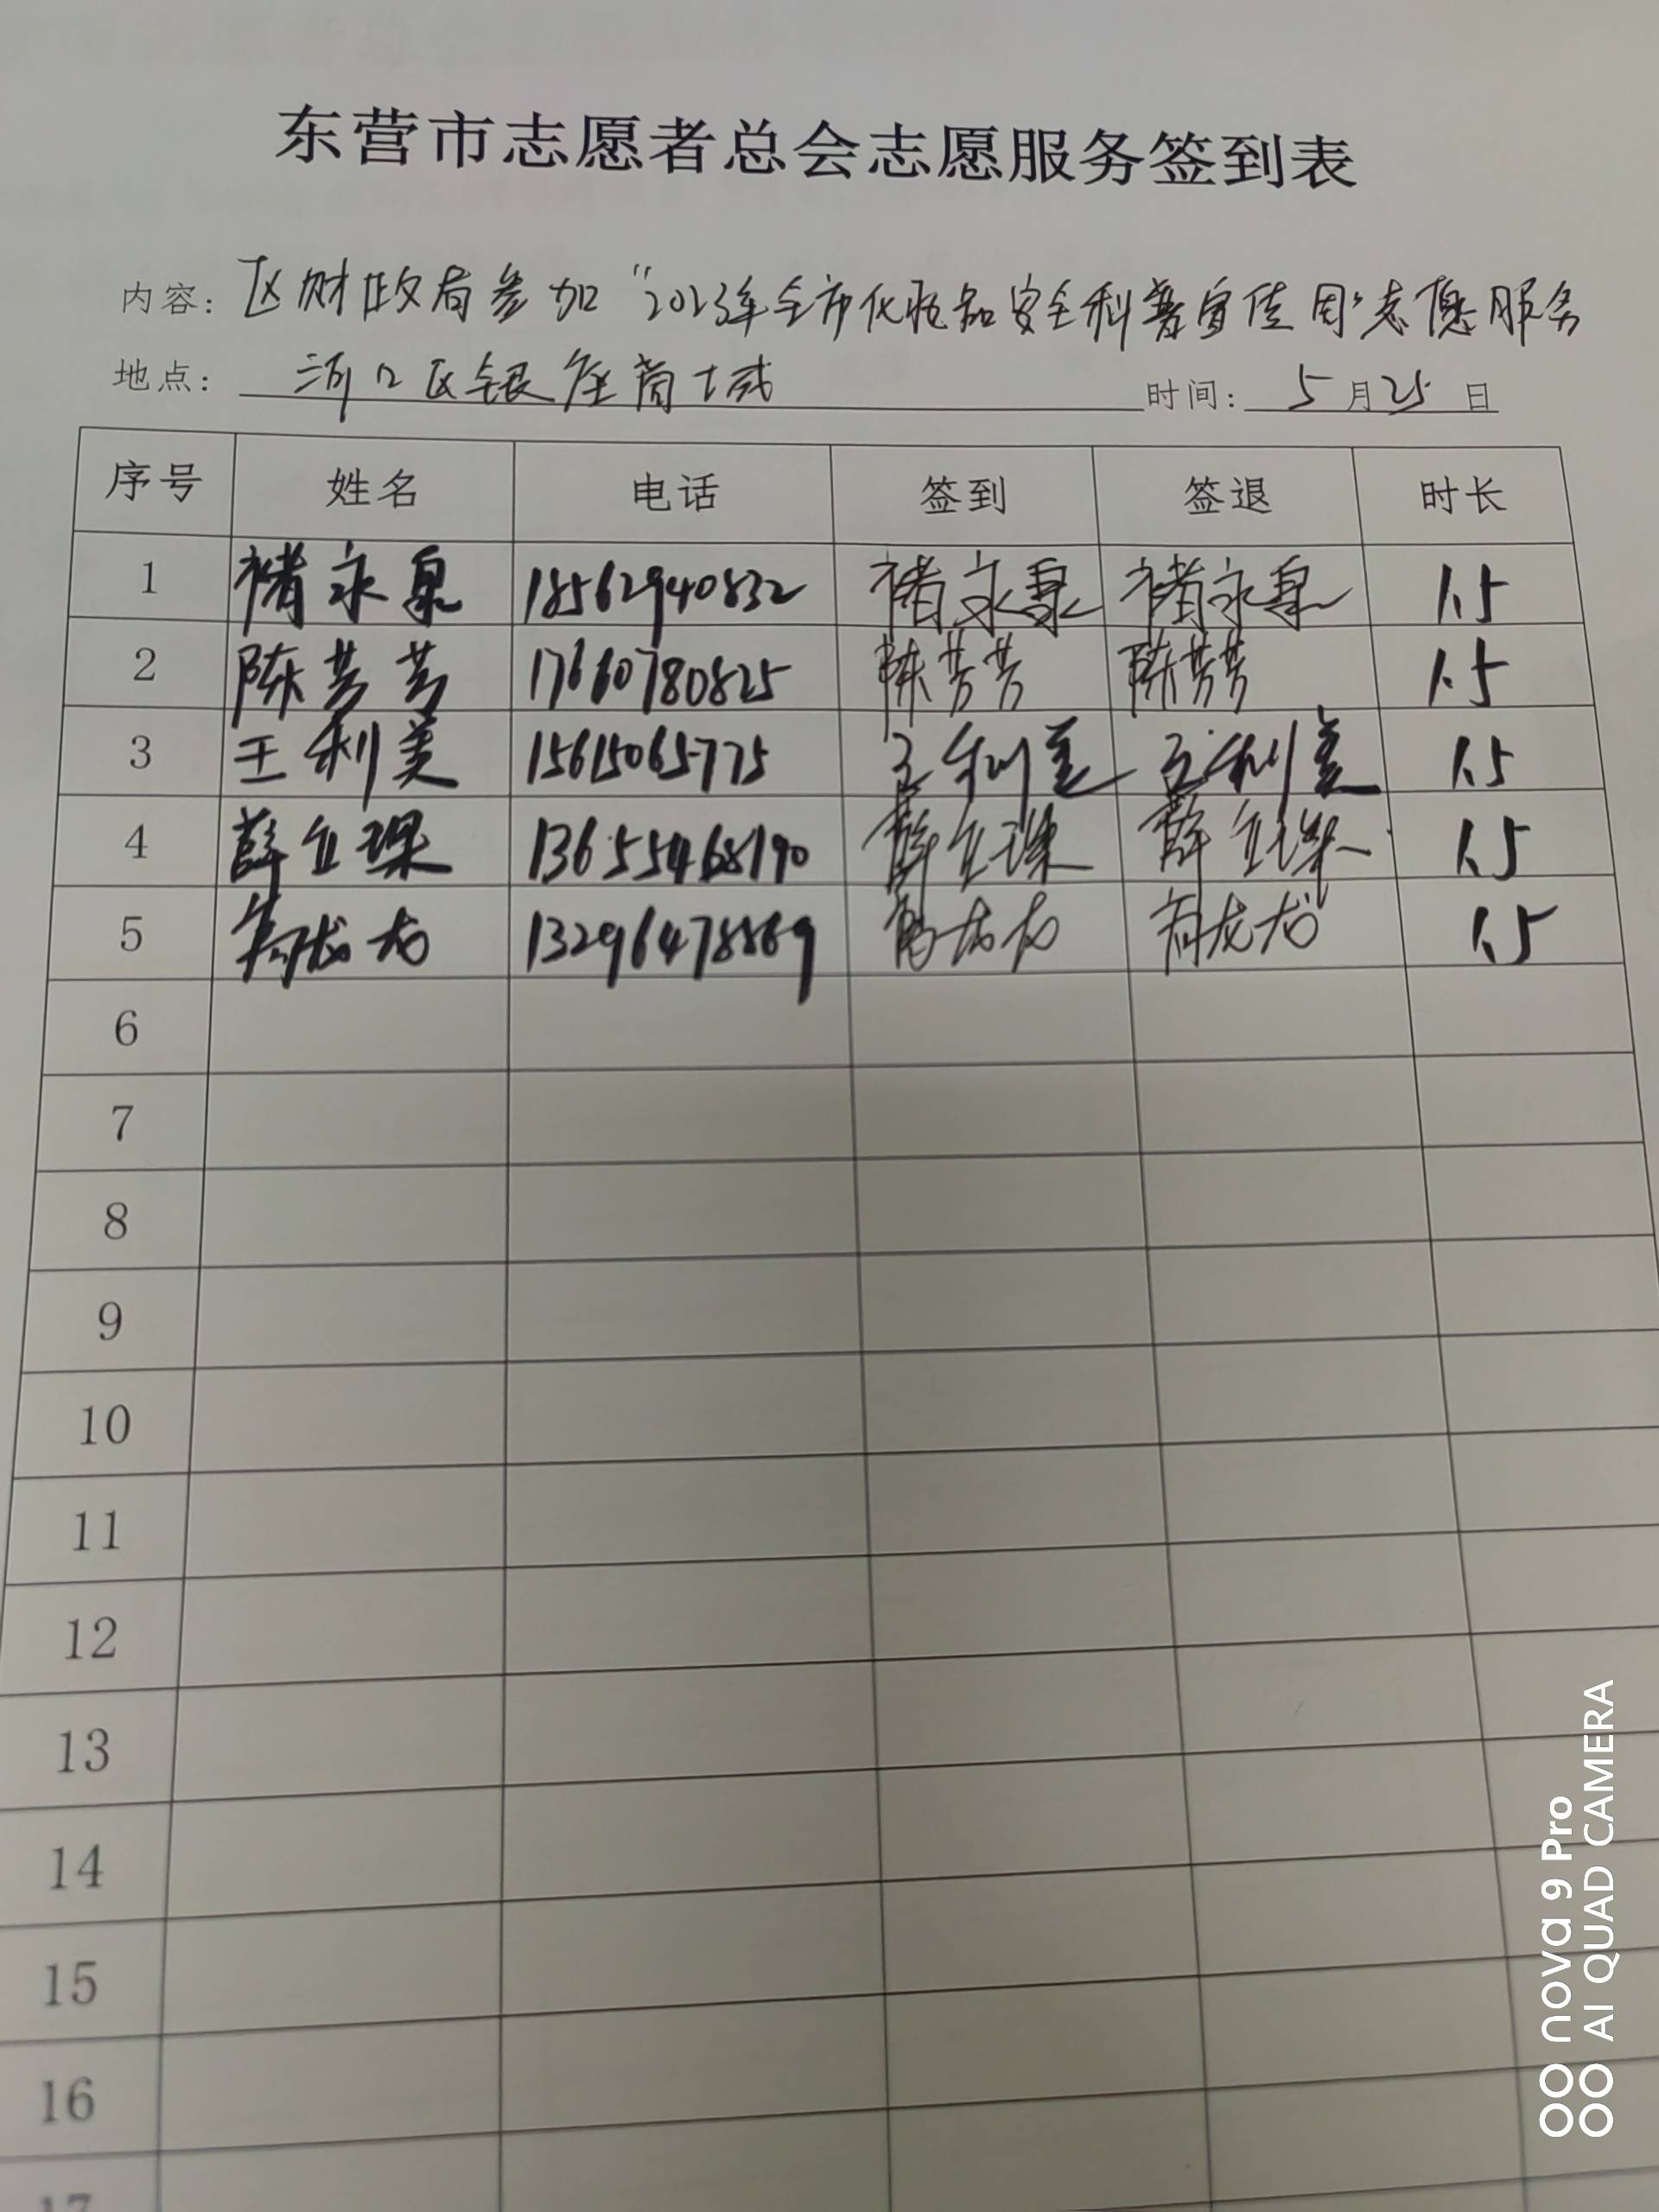 东营市志愿者总会志愿服务签到表
内容: 区财政局参加"2023年全市化妆品安全科普宣传周"志愿服务
地点: 河口区银座商城 时间: 5月25日
序号 姓名 电话 签到 签退 时长
1 褚永泉 18562940832 褚永泉 褚永泉 1.5
2 陈芳芳 17660780825 陈芳芳 陈芳芳 1.5
3 王利美 15615065775 王利美 王利美 1.5
4 薛立琛 13655468190 薛立琛 薛立琛 1.5
5 龙龙 13296478869 龙龙 龙龙 1.5
6
7
8
9
10
11
12
13
14
15
16
17
nova 9 Pro
AI QUAD CAMERA